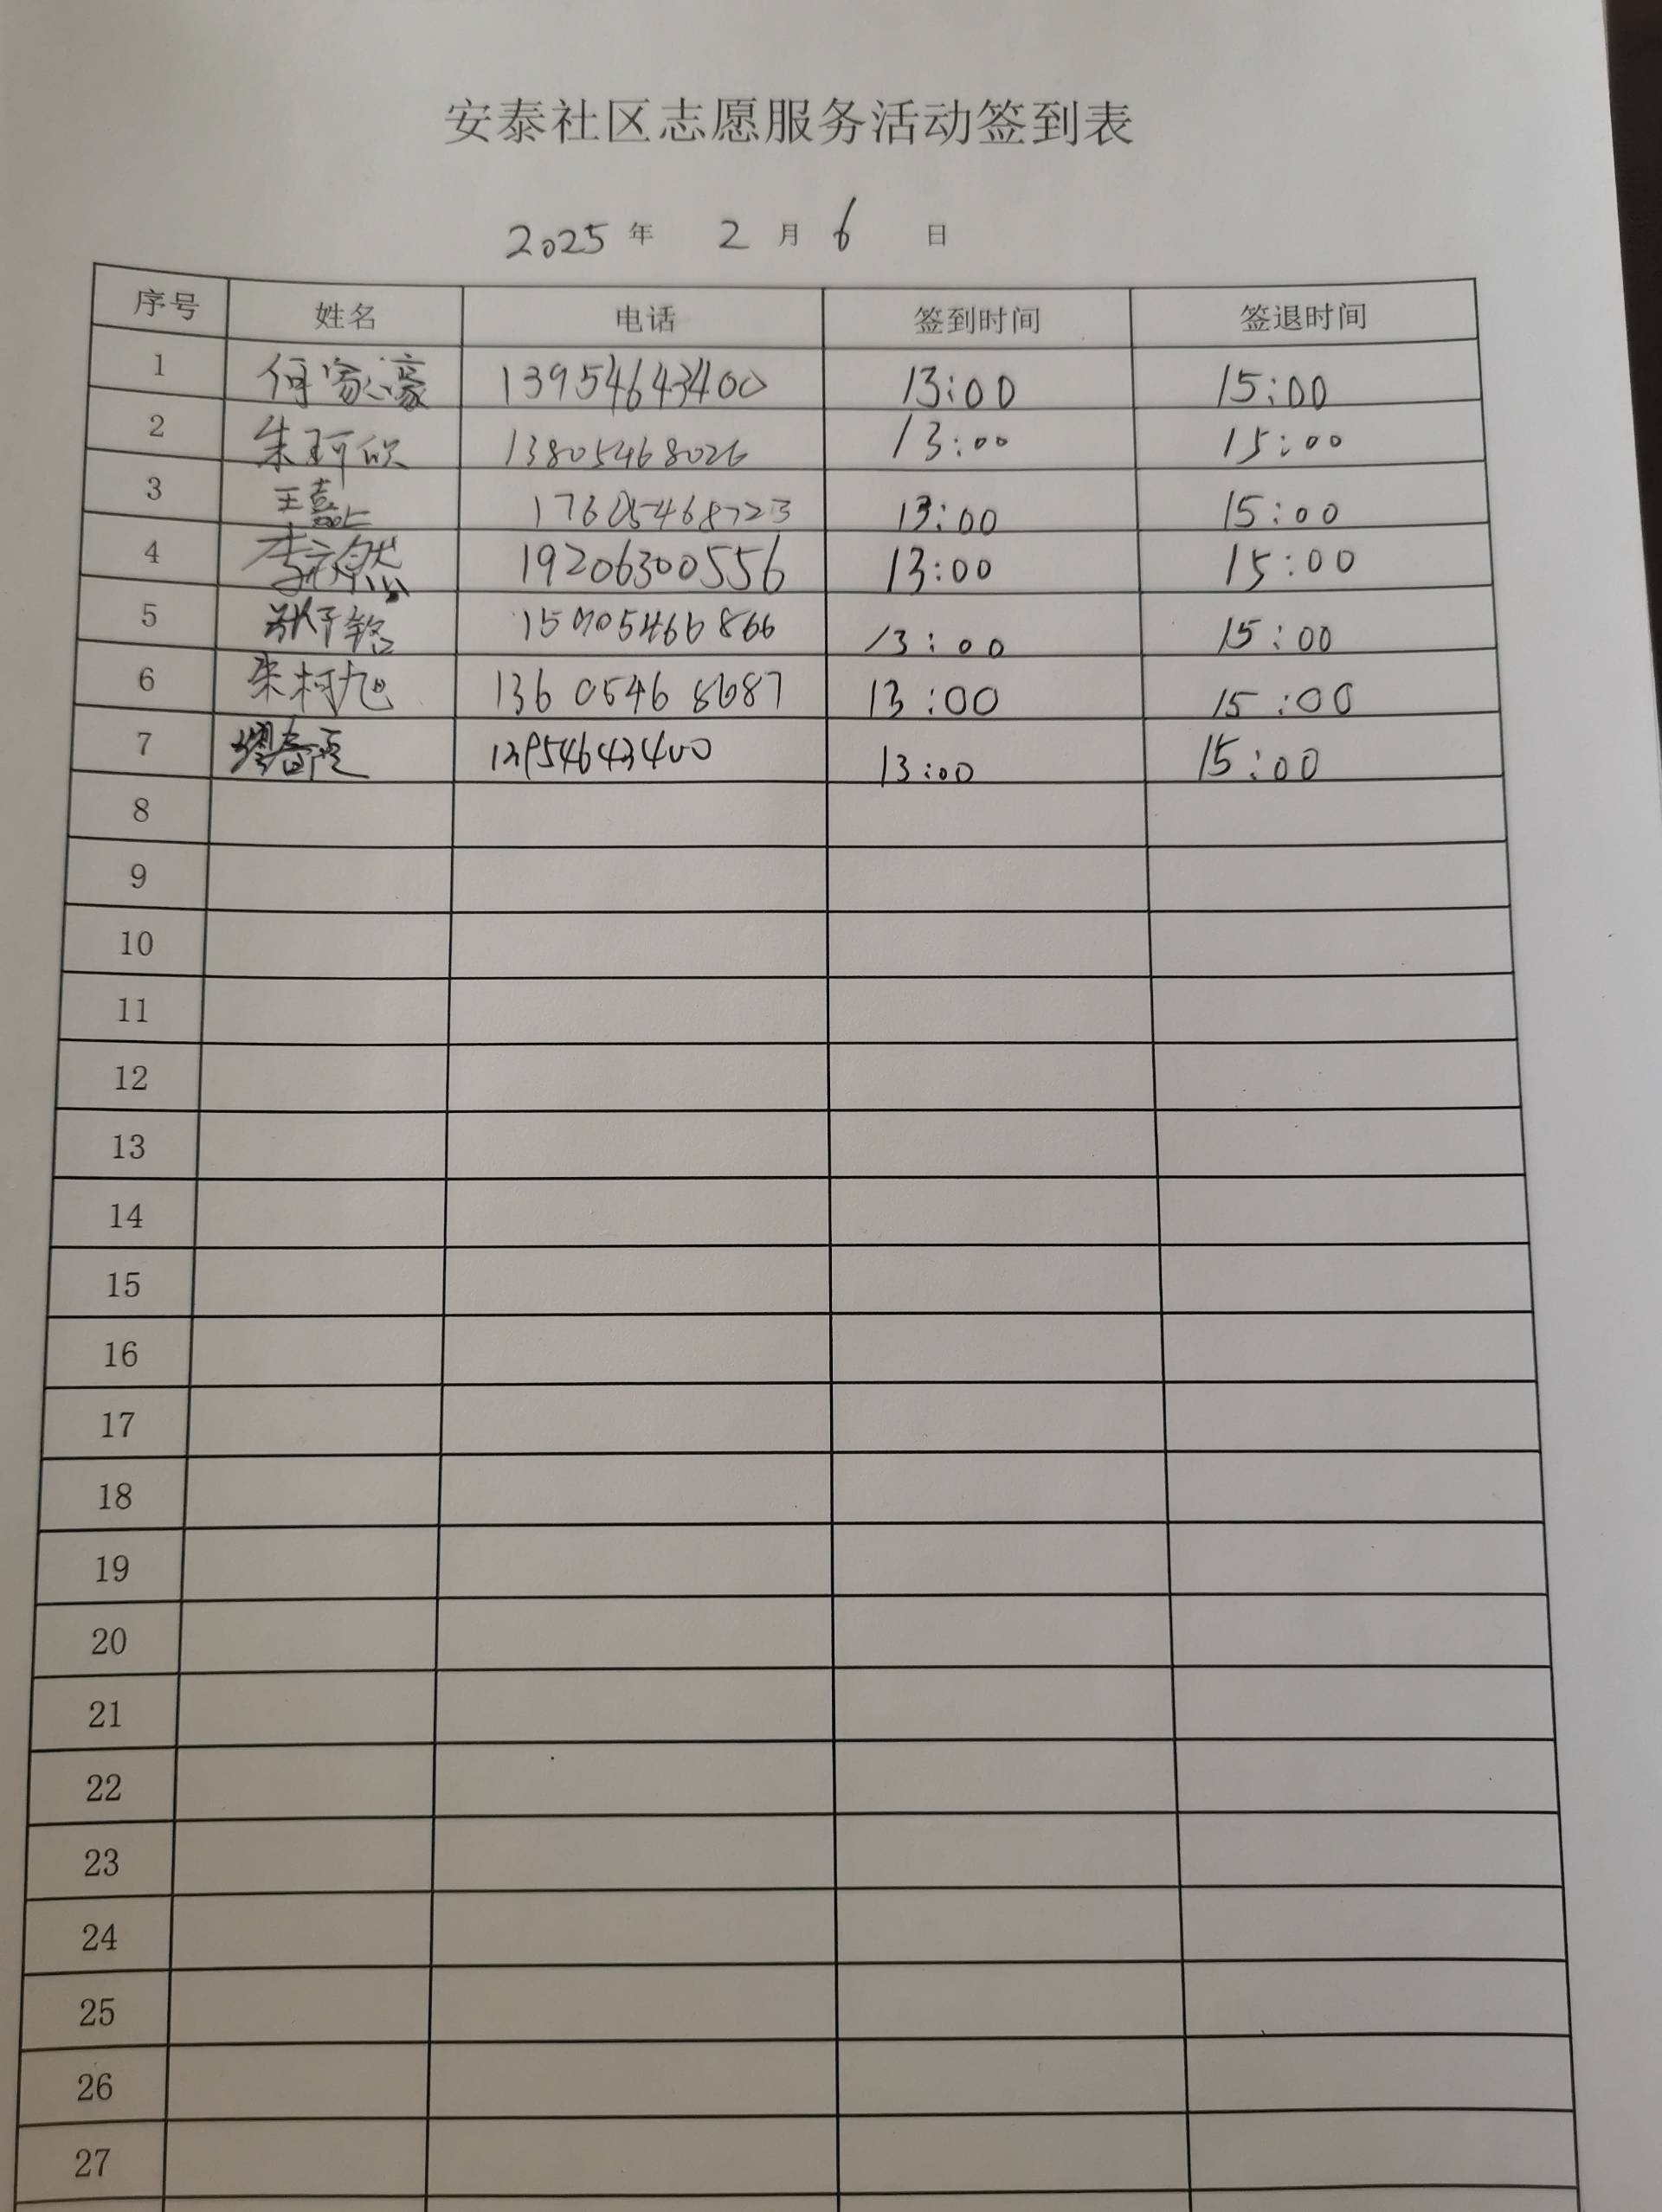 安泰社区志愿服务活动签到表
2025 年 2 月 6 日
序号 姓名 电话 签到时间 签退时间
1 何家濠 13954643400 13:00 15:00
2 朱珂欣 13805468026 13:00 15:00
3 王嘉 17605468723 13:00 15:00
4 李然 19206300556 13:00 15:00
5 13:00 15:00
6 朱柯旭 13605468687 13:00 15:00
7 13954643400 13:00 15:00
8
9
10
11
12
13
14
15
16
17
18
19
20
21
22
23
24
25
26
27